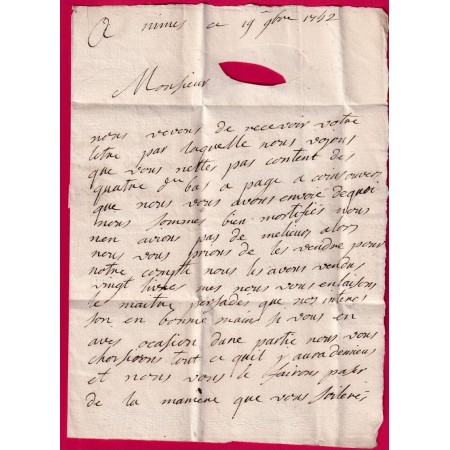 A nimes ce 19 9bre 1742
Monsieur
nous venons de recevoir votre
letre par laquelle nous voyons
que vous nettes pas content des
quatre bas a page a
que nous vous avons envoié dequoi
nous sommes bien mortifiés nous
nen avions pas de melieurs alors
nous vous prions de les vendre pour
notre compte nous les avons vendus
vingt livres mes nous vous en laisons
le maitre persuades que nos interes
son en bonnes mains si vous en
aves ocasion dune partie nous vous
choisirons tout ce quil y aura de mieux
et nous vous le fairons passer
de la maniere que vous